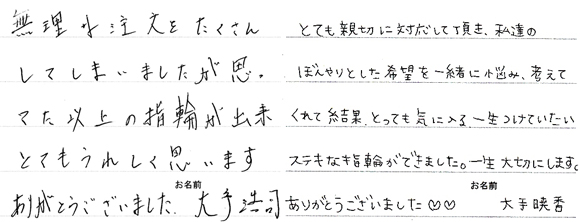 無理な注文をたくさん
してしまいましたが思
てた以上の指輪が出来
とてもうれしく思います
ありがとうございました。
お名前
大手浩司
とても親切に対応して頂き、私達の
ぼんやりとした希望を一緒に悩み、考えて
くれて結果、とっても気に入る一生つけていたい
ステキな指輪ができました。一生大切にします。
ありがとうございました♡♡
お名前
大手映香